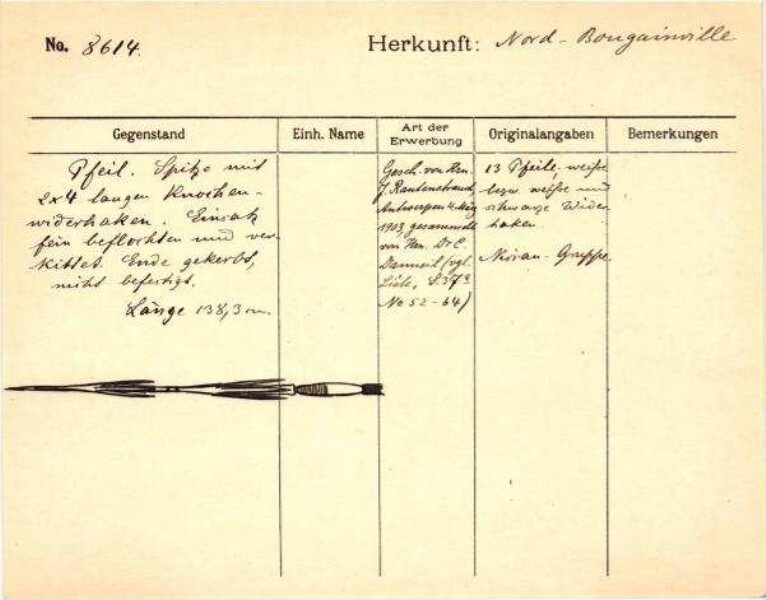 No. 8614.
Herkunft: Nord-Bougainville
Gegenstand
Einh. Name
Art der Erwerbung
Originalangaben
Bemerkungen
Pfeil. Spitze mit
2x4 langen Knochen-
widerhaken. Einsatz
fein beflochten und ver-
kittet. Ende gekerbt,
nicht befestigt.
Länge 138,3 cm.
Gesch. von Hrn.
J. Rautenstrauch,
Antwerpen 4. März
1903, gesammelt
von Hrn. Dr C.
Danneil (vgl.
Liste, S.37
No 52-64)
13 Pfeile, weiße
bezw. weiße und
schwarze Wider-
haken.
Nissan-Gruppe.